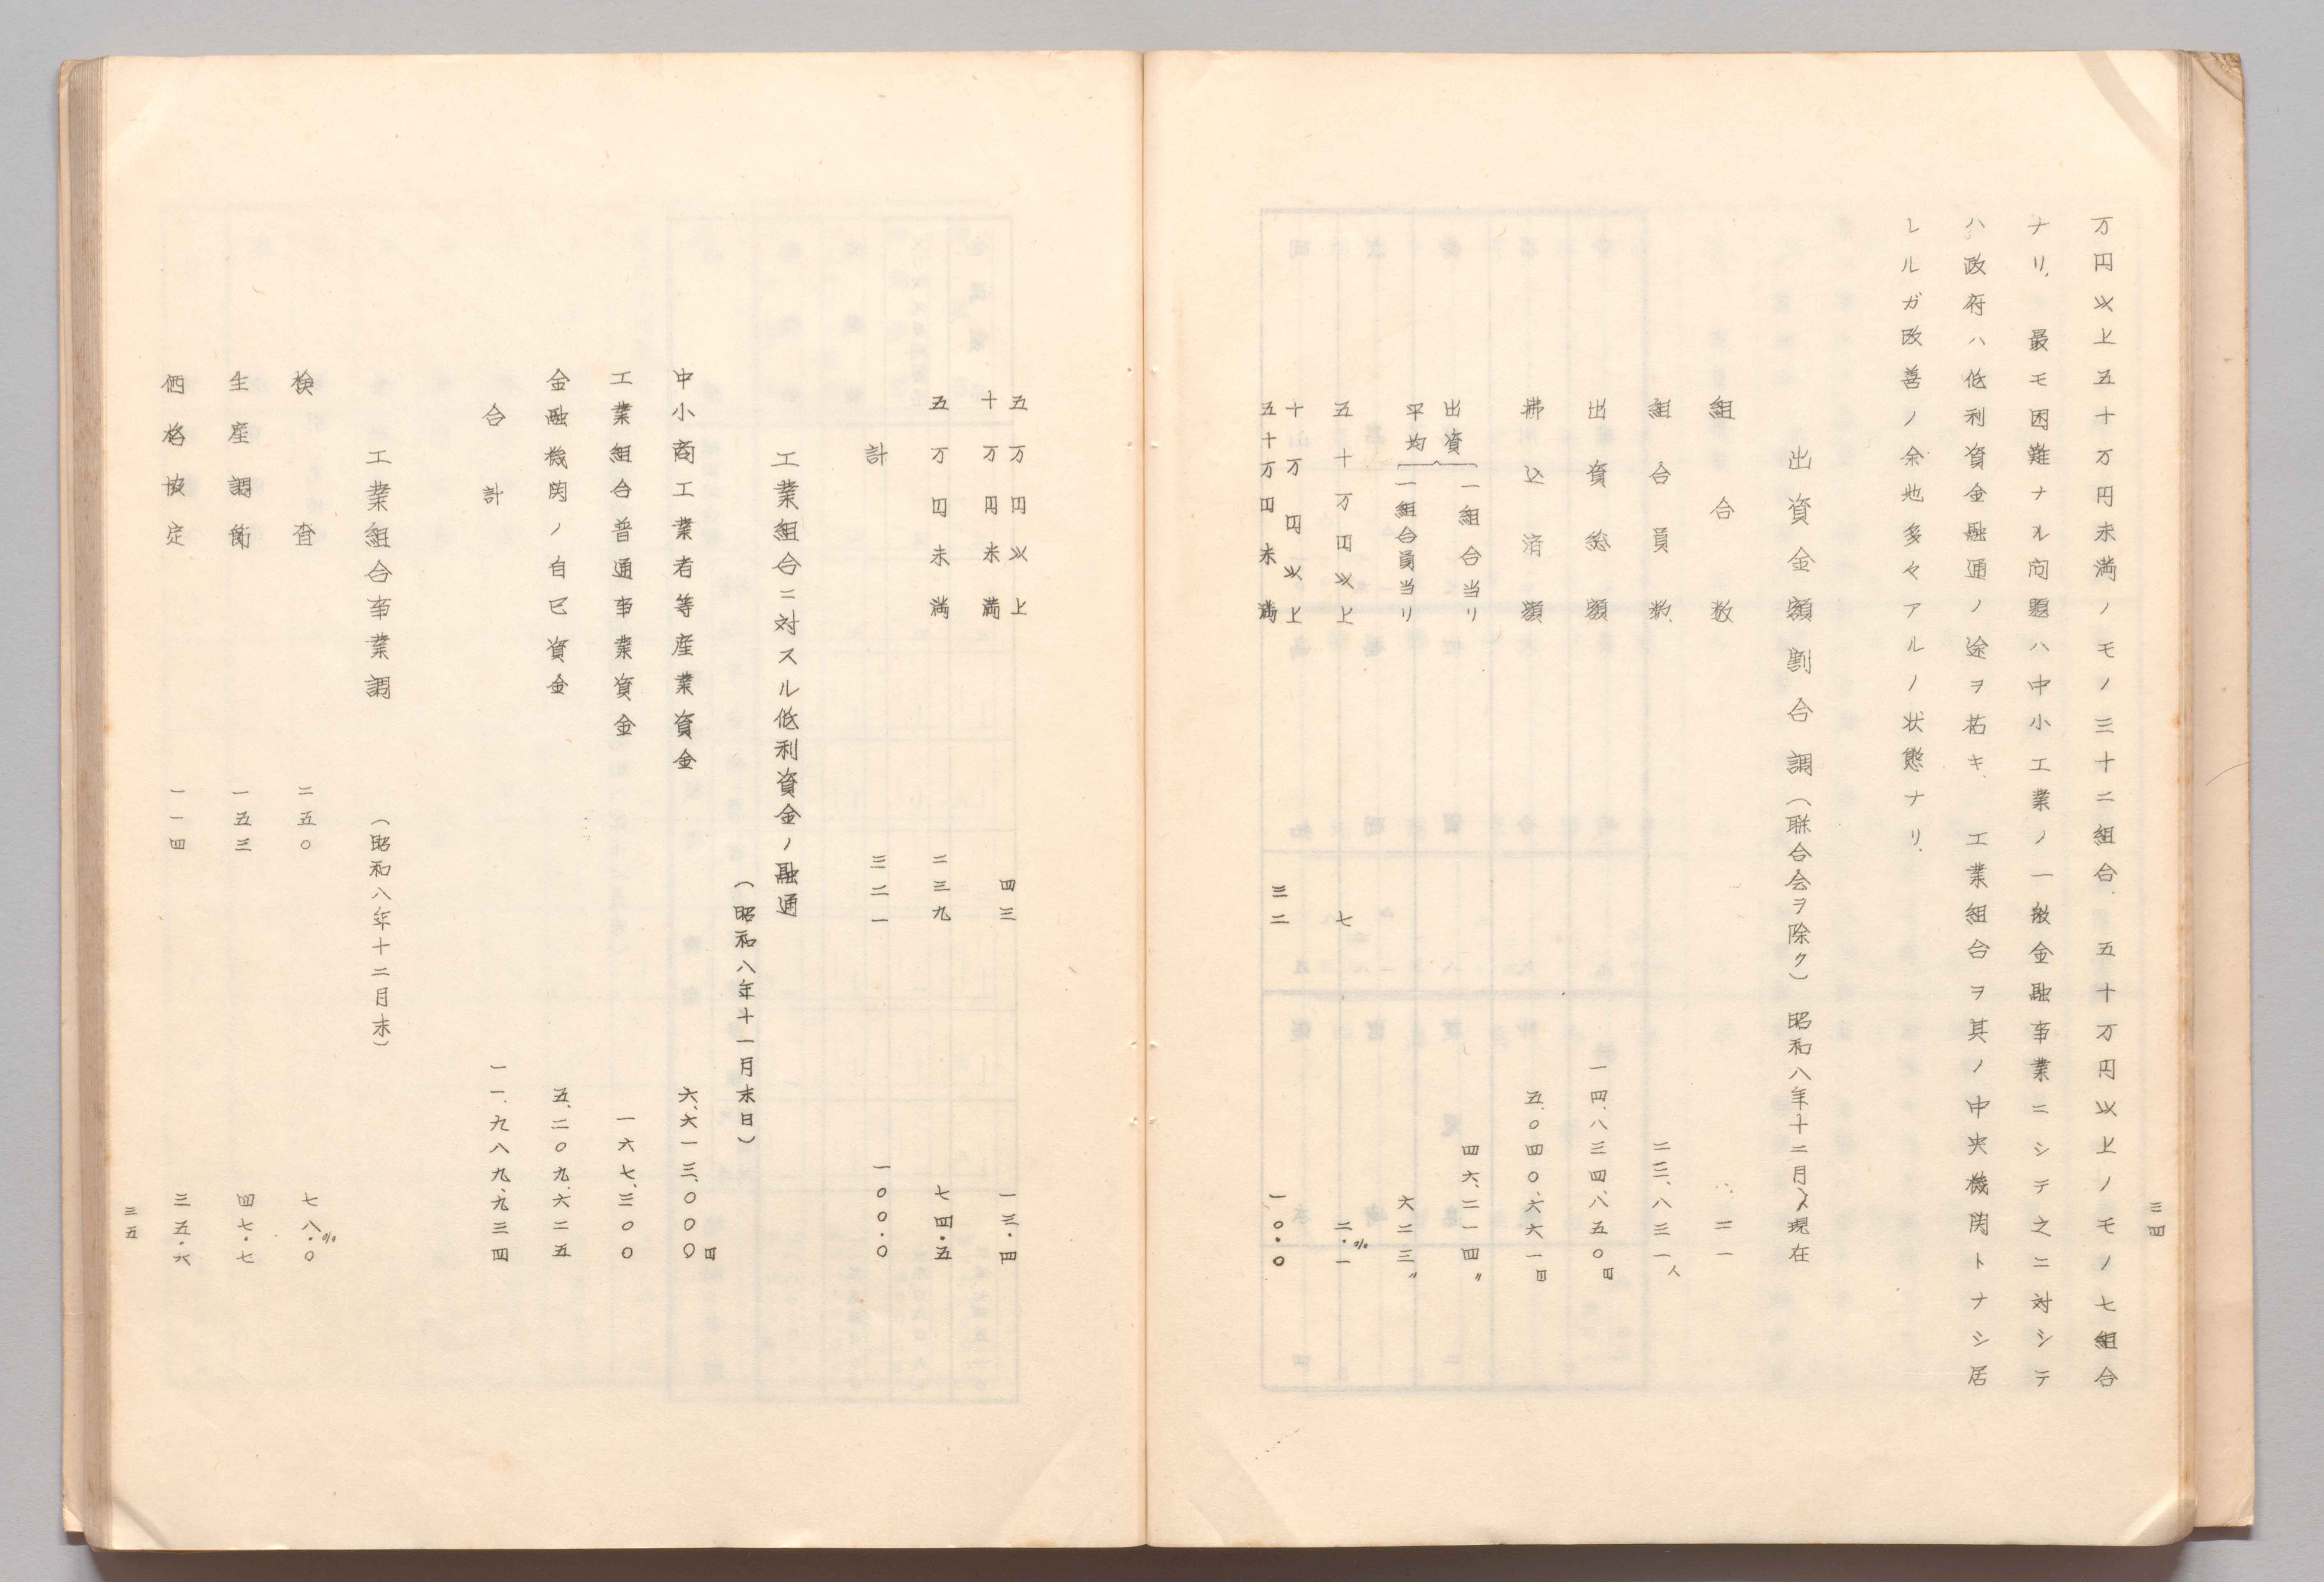 三四
万円以上五十万円未満ノモノ三十二組合、五十万円以上ノモノ七組合
ナリ、最モ困難ナル問題ハ中小工業ノ一般金融事業ニシテ之ニ対シテ
ハ政府ハ低利資金融通ノ途ヲ拓キ、工業組合ヲ其ノ中央機関トナシ居
レルガ改善ノ余地多々アルノ状態ナリ、
出資金額割合調（聯合会ヲ除ク）昭和八年十二月〆現在
組合数 三二一
組合員数 二三、八三一人
出資総額 一四、八三四、八五〇円
拂込済額 五、〇四〇、六六一円
出資平均
一組合当リ 四六、二一四〃
一組合員当リ 六二三〃
五十万円以上 七 二・一%
十万円以上五十万円未満 三二 一〇・〇
五万円以上十万円未満 四三 一三・四
五万円未満 二三九 七四・五
計 三二一 一〇〇・〇
工業組合ニ対スル低利資金ノ融通
（昭和八年十一月末日）
中小商工業者等産業資金 六、六一三、〇〇〇円
工業組合普通事業資金 一六七、三〇〇
金融機関ノ自己資金 五、二〇九、六二五
合計 一一、九八九、九三四
工業組合事業調（昭和八年十二月末）
検査 二五〇 七八・〇%
生産調節 一五三 四七・七
価格協定 一一四 三五・六
三五